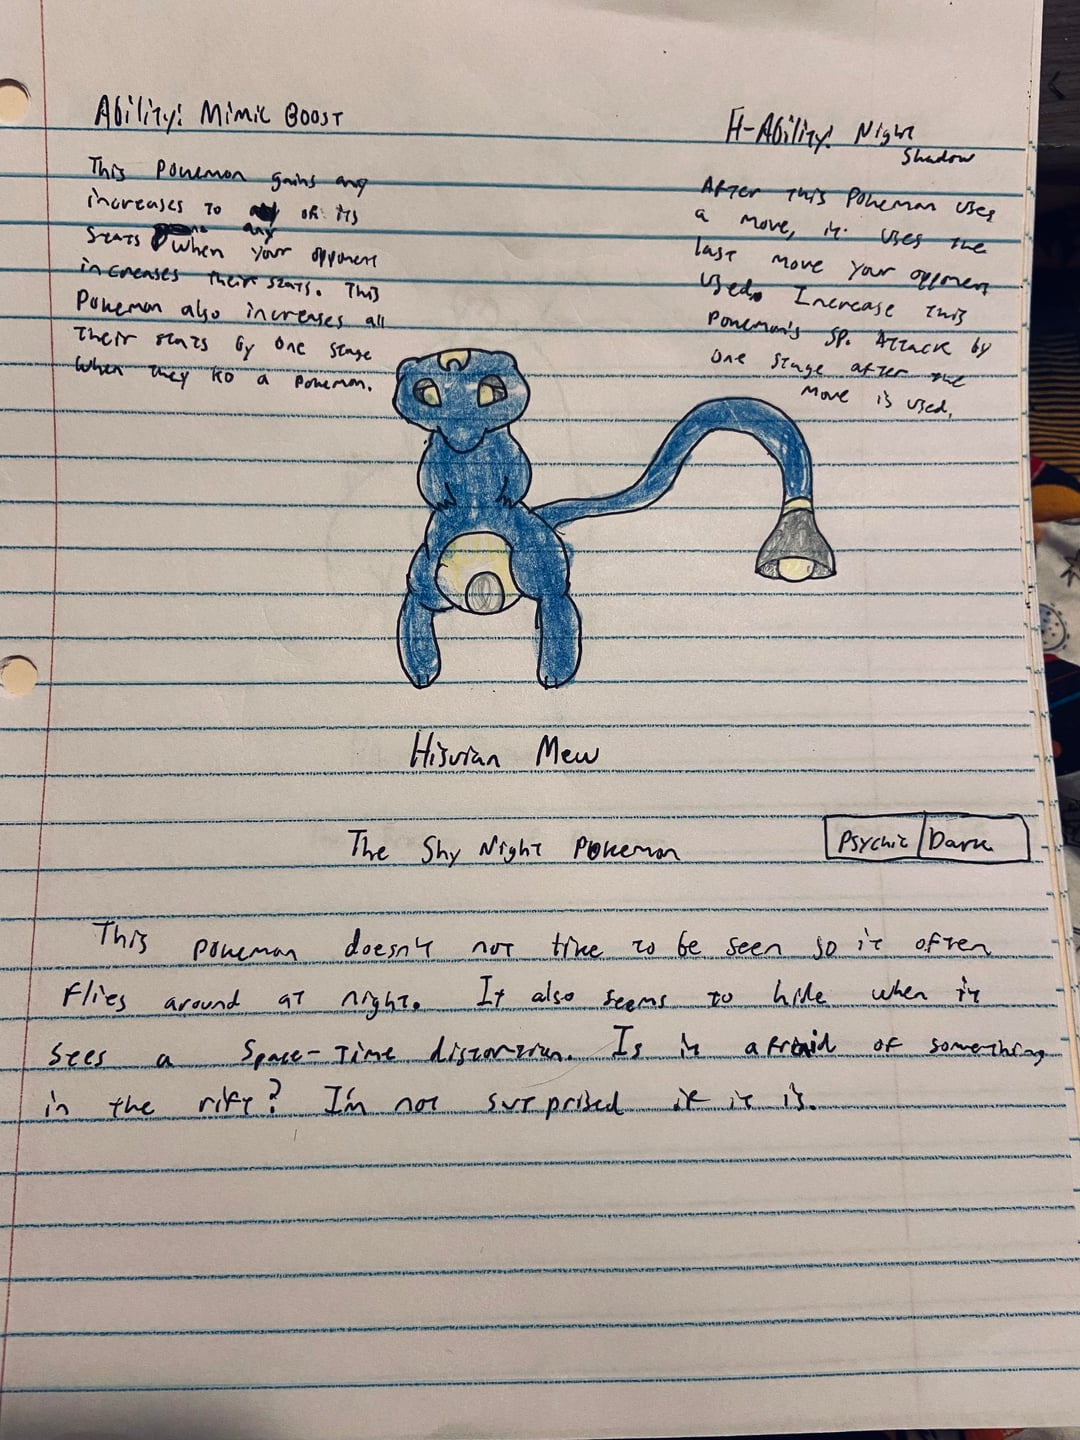 Ability: Mimic Boost
This Pokemon gains any
increases to of its
stats when any your opponent
increases their stats. This
Pokemon also increases all
their stats by one stage
when they KO a Pokemon.
H-Ability: Night
Shadow
After this Pokemon uses
a move, it uses the
last move your opponent
used. Increase this
Pokemon's SP. Attack by
one stage after the
move is used.
Hisuian Mew
The Shy Night Pokemon
Psychic Dark
This Pokemon doesn't not like to be seen so it often
flies around at night. It also seems to hide when it
sees a space-time distortion. Is it afraid of something
in the rift? I'm not surprised if it is.